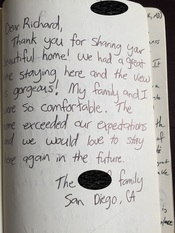 Dear Richard,
Thank you for sharing your
beautiful home! We had a great
time staying here and the view
is gorgeous! My family and I
were so comfortable. The
home exceeded our expectations
and we would love to stay
here again in the future.
The family
San Diego, CA